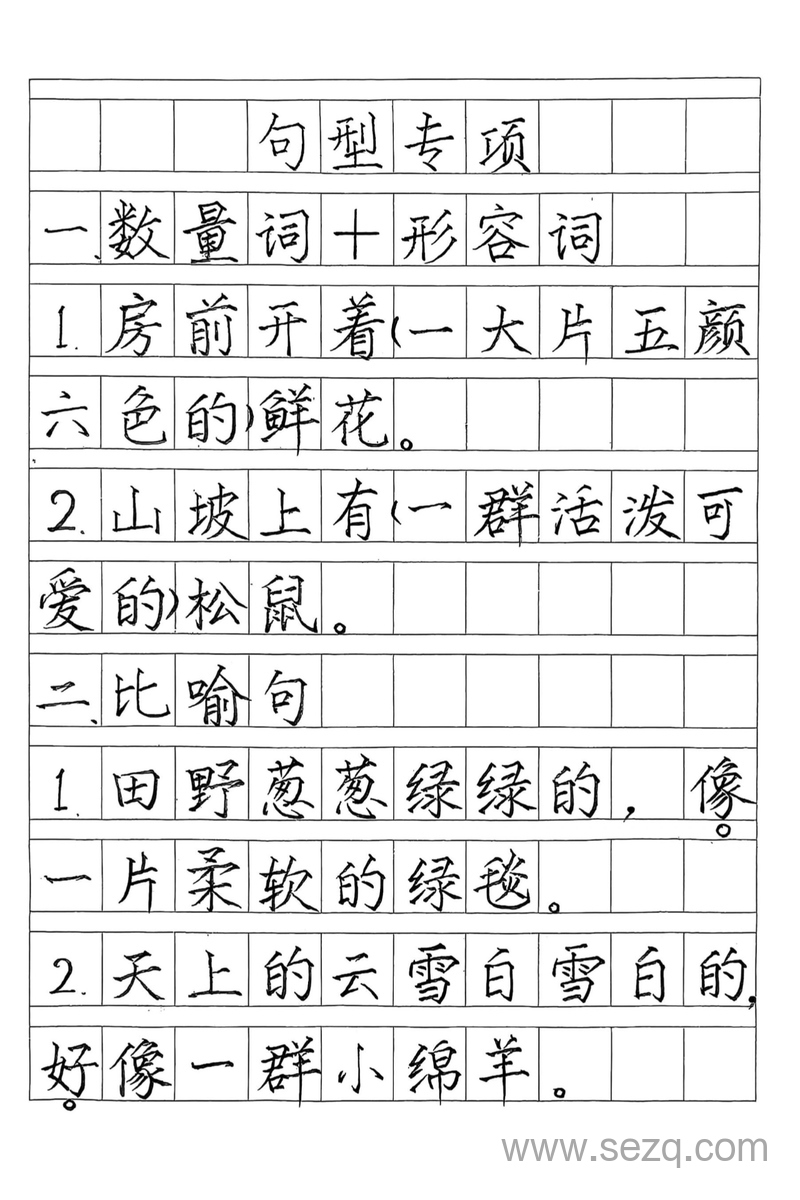 句型专项
一、数量词＋形容词
1.房前开着(一大片五颜
六色的)鲜花。
2.山坡上有(一群活泼可
爱的)松鼠。
二、比喻句
1.田野葱葱绿绿的，像
一片柔软的绿毯。
2.天上的云雪白雪白的，
好像一群小绵羊。
www.sezq.com